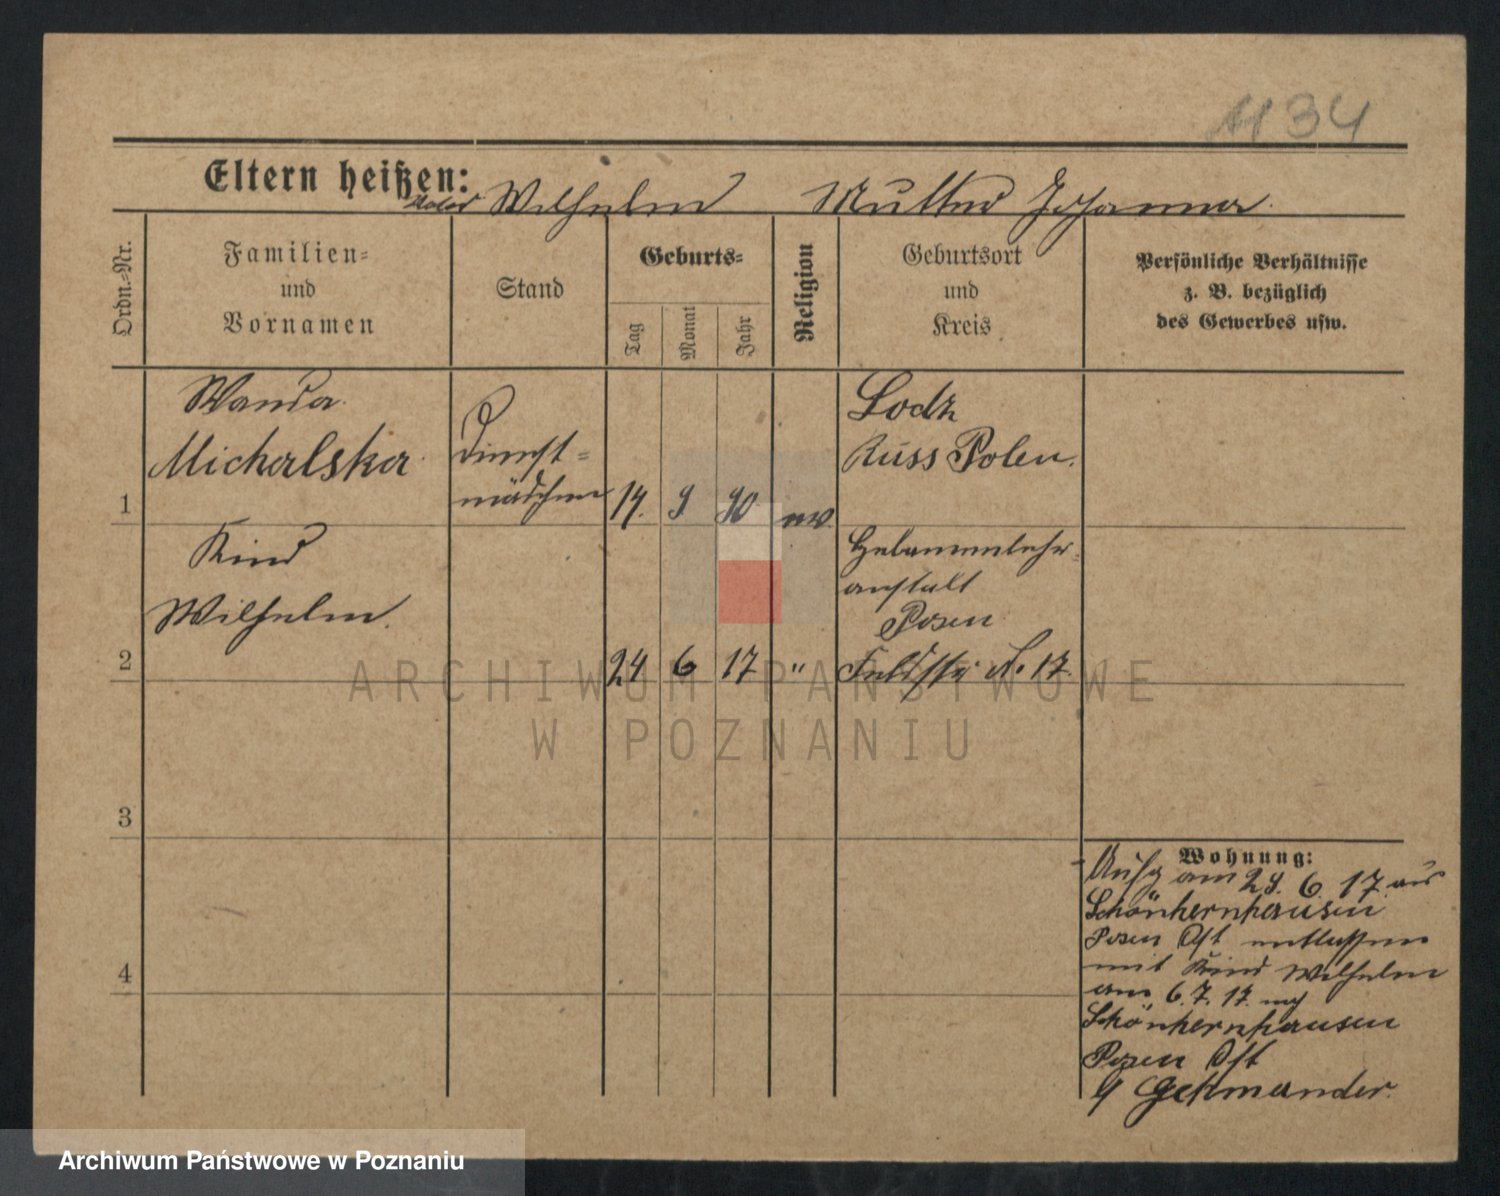 1134
Eltern heißen: Vater Wilhelm Mutter Johanna.
Ordn.-Nr.
Familien-
und
Vornamen
Stand
Geburts-
Tag
Monat
Jahr
Religion
Geburtsort
und
Kreis
Persönliche Verhältnisse
z. B. bezüglich
des Gewerbes usw.
1
Wanda
Michalska
Dienst-
mädchen
14. 9 90 ev
Lodz
Russ Polen.
2
Kind
Wilhelm.
24 6 17 "
Hebammenlehr-
anstalt
Posen
Feldstr. No 17.
3
4
Wohnung:
Aufg am 29. 6. 17. aus
Schönhernhausen
Posen Ost entlassen
mit Kind Wilhelm
am 6. 7. 17.
Schönhernhausen
Posen Ost
ARCHIWUM PAŃSTWOWE
W POZNANIU
Archiwum Państwowe w Poznaniu